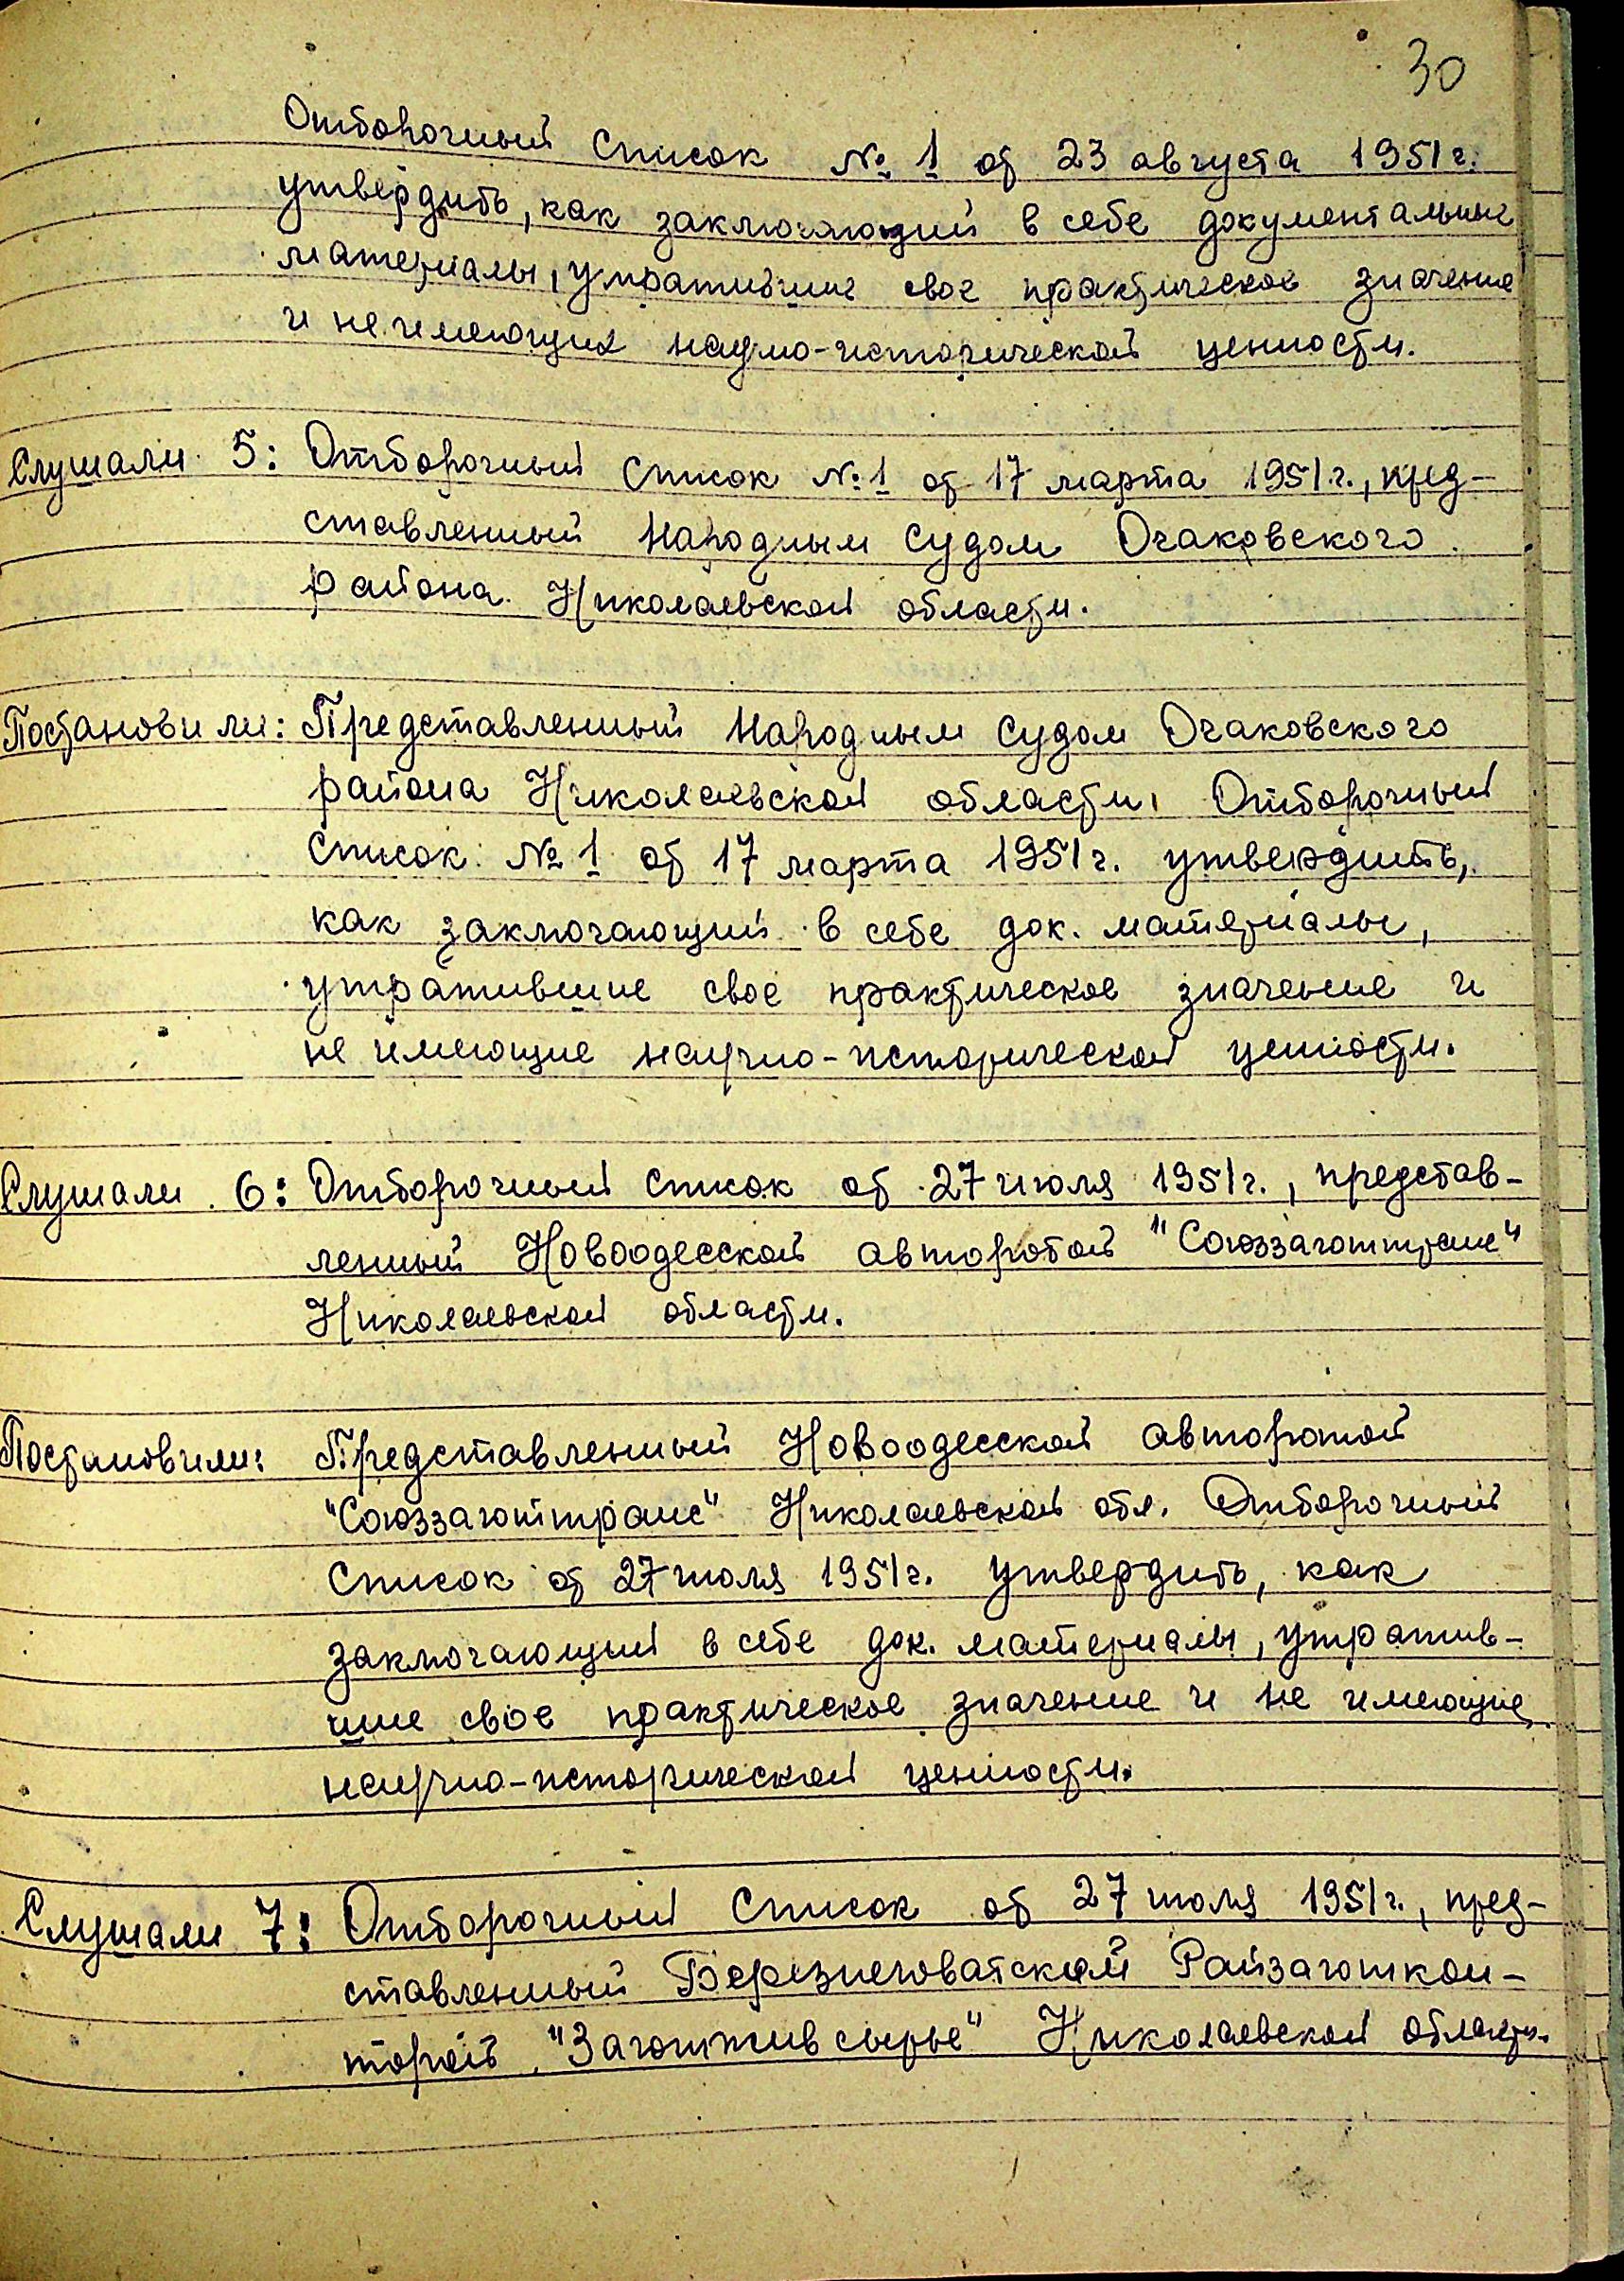 30
Отборочный список № 1 от 23 августа 1951 г.
утвердить, как заключающий в себе документальные
материалы, утратившие свое практическое значение
и не имеющих научно-исторической ценности.
Слушали 5: Отборочный список № 1 от 17 марта 1951 г., пред-
ставленный Народным Судом Очаковского
района Николаевской области.
Постановили: Представленный Народным Судом Очаковского
района Николаевской области, Отборочный
список № 1 от 17 марта 1951 г. утвердить,
как заключающий в себе док. материалы,
утратившие свое практическое значение и
не имеющие научно-исторической ценности.
Слушали 6: Отборочный список от 27 июля 1951 г., представ-
ленный Новоодесской авторотой "Союззаготтранс"
Николаевской области.
Постановили: Представленный Новоодесской авторотой
"Союззаготтранс" Николаевской обл. Отборочный
список от 27 июля 1951 г. утвердить, как
заключающий в себе док. материалы, утратив-
шие свое практическое значение и не имеющие
научно-исторической ценности.
Слушали 7: Отборочный список от 27 июля 1951 г., пред-
ставленный Березнеговатской Райзаготкон-
торой "Заготживсырье" Николаевской области.